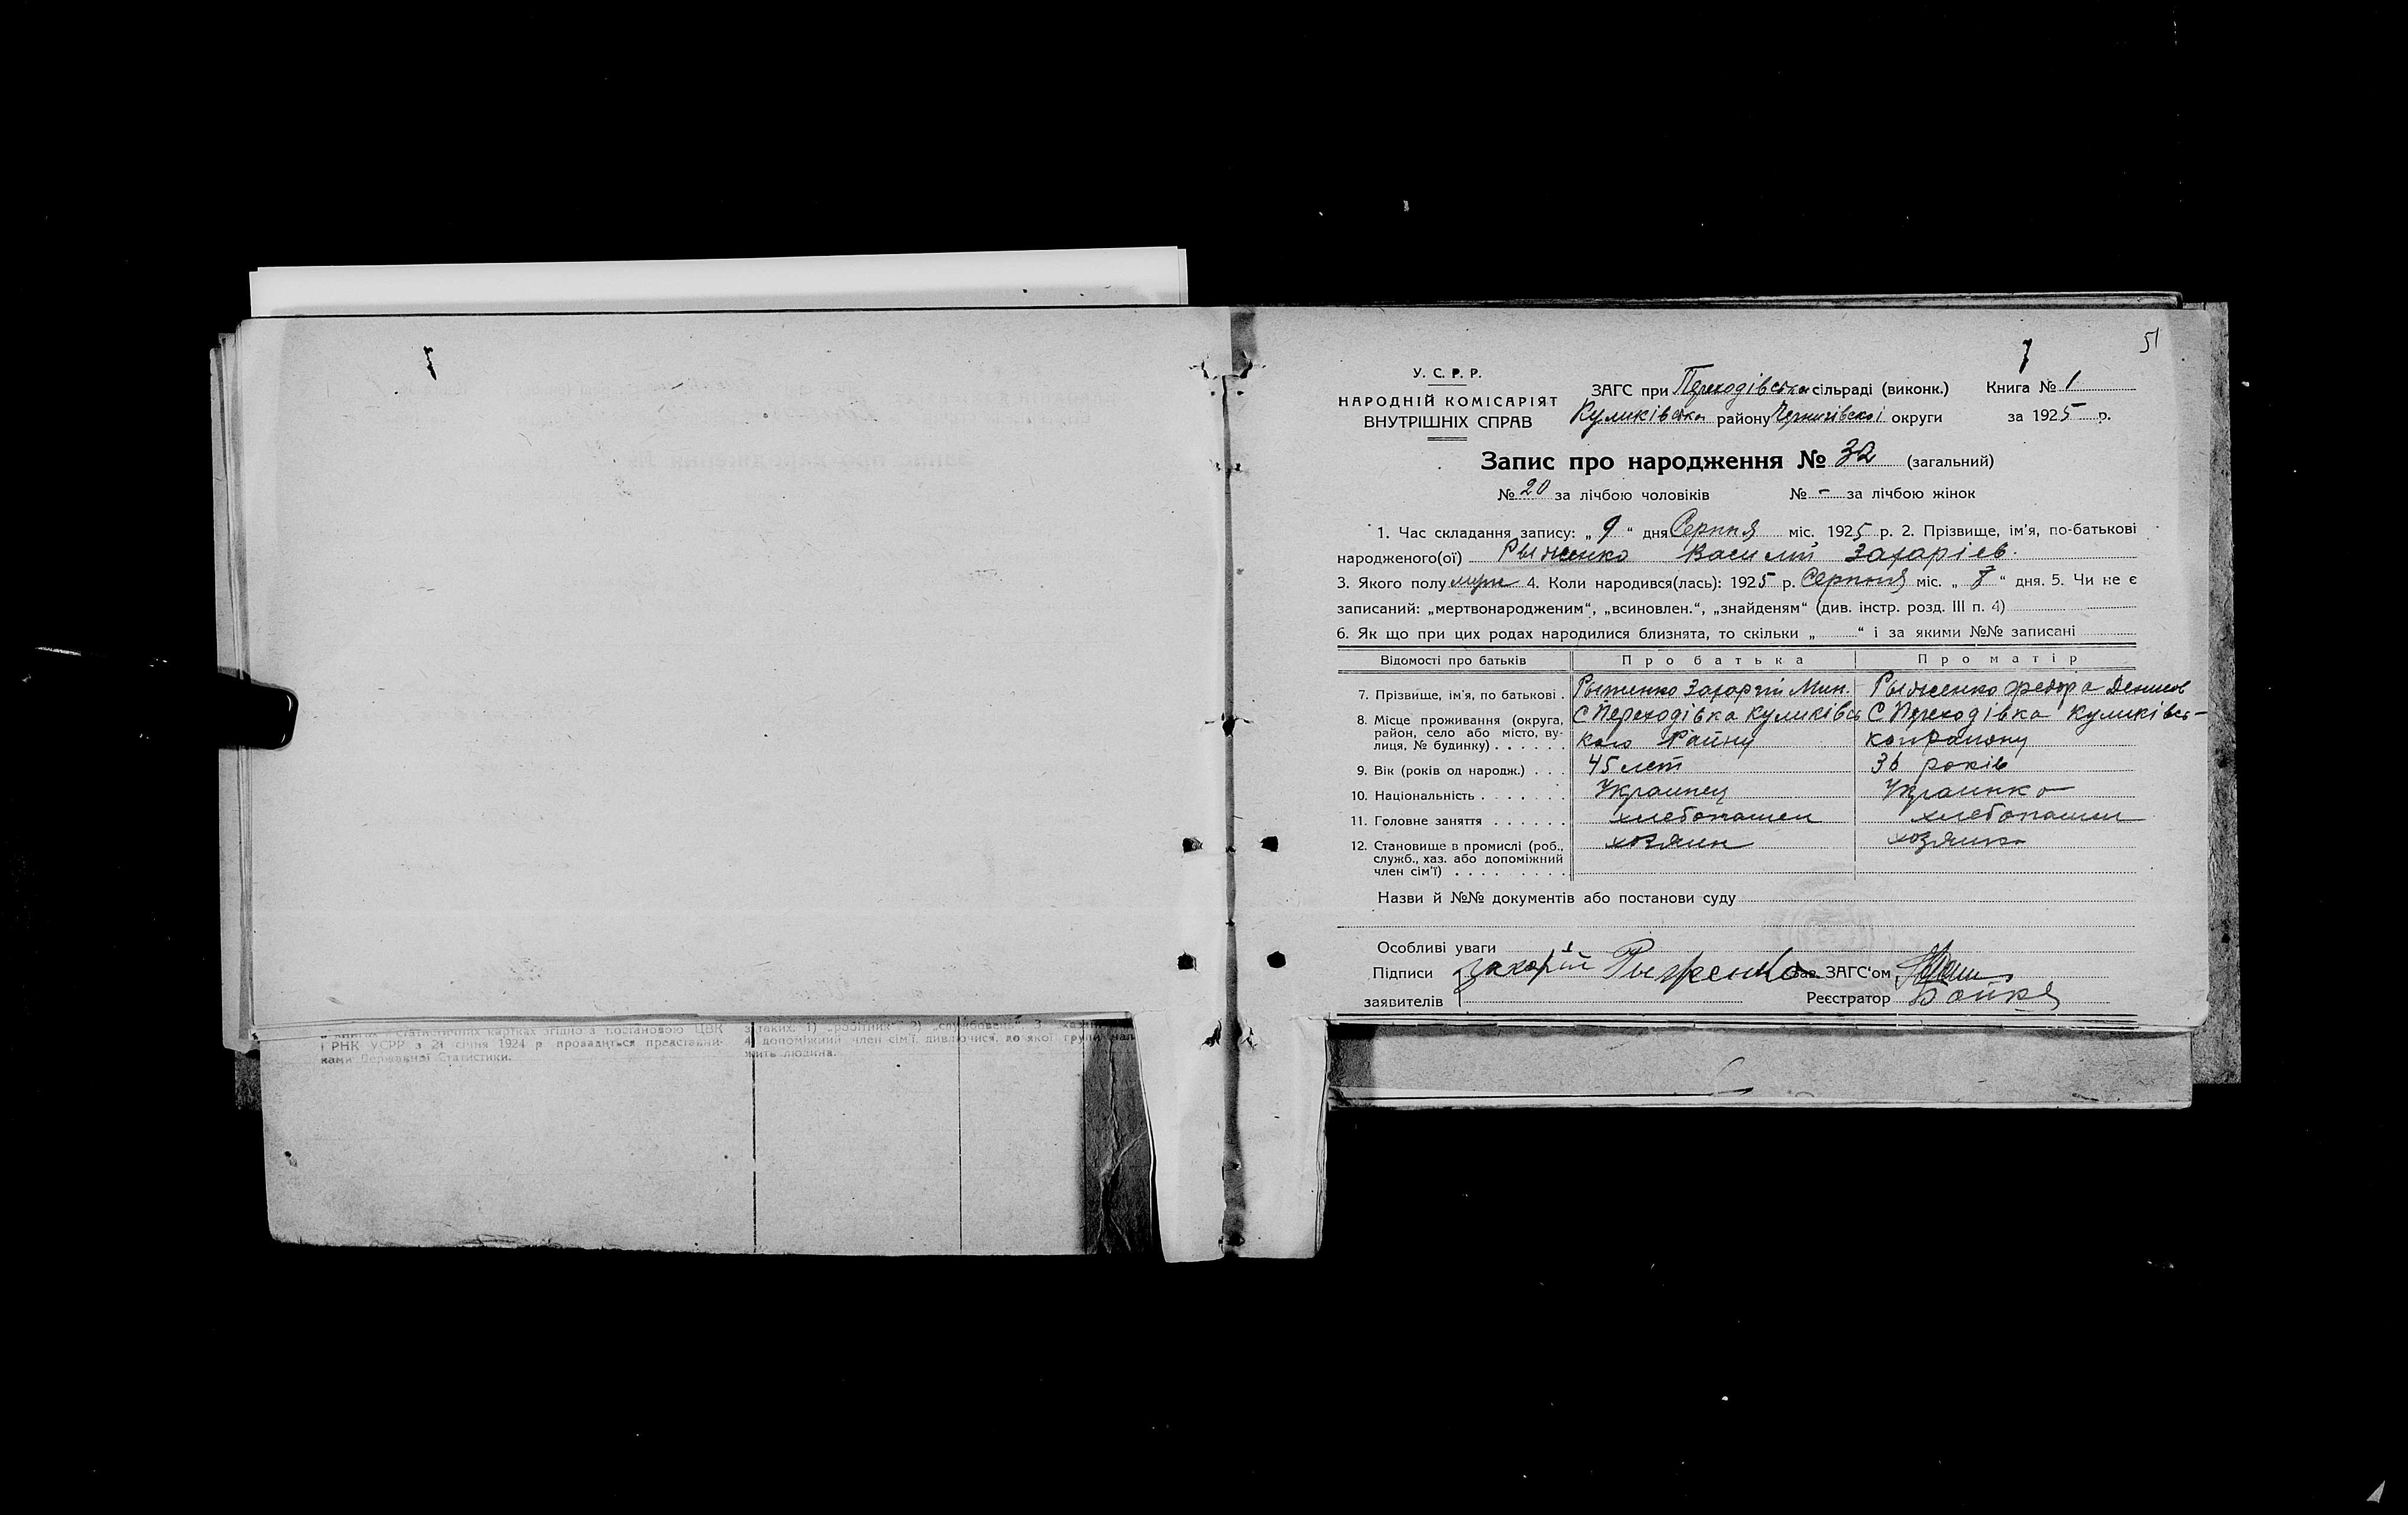 51
У. С. Р. Р.
НАРОДНІЙ КОМІСАРІЯТ
ВНУТРІШНІХ СПРАВ
ЗАГС при Переходівська сільраді (виконк.)
Куликівска району Чернигівскоі округи
Книга № 1
за 1925 р.
Запис про народження № 32 (загальний)
№ 20 за лічбою чоловіків № - за лічбою жінок
1. Час складання запису: „ 9 “ дня Серпня міс. 1925 р. 2. Прізвище, ім'я, по-батькові
народженого(ої) Рыженко Василий Захаріев.
3. Якого полу муж 4. Коли народився(лась): 1925 р. Серпня міс. „ 7 “ дня. 5. Чи не є
записаний: „мертвонародженим“, „всиновлен.“, „знайденям“ (див. інстр. розд. III п. 4)
6. Як що при цих родах народилися близнята, то скільки „ “ і за якими №№ записані
Відомості про батьків Про батька Про матір
7. Прізвище, ім'я, по батькові . Рыженко Захарий Мин. Рыженко Федора Денисов
8. Місце проживання (округа, С Переходівка Куликівсь С Переходівка Куликівсь-
район, село або місто, ву-
лиця, № будинку) . . . . . . кого Району
9. Вік (років од народж.) . . . 45 лет 36 років
10. Національність . . . . . . . Украинец Украинка
11. Головне заняття . . . . . . хлебопашец хлебопашец
12. Становище в промислі (роб., хозяин хозяика
служб., хаз. або допоміжний
член сім'ї) . . . . . . . . .
Назви й №№ документів або постанови суду
Особливі уваги
Підписи Захарій Рыженко Зав. ЗАГС'ом
заявителів Реєстратор Бойко
статистичних картках згідно з постановою ЦВК
і РНК УСРР з 21 січня 1924 р провадиться представни-
ками Державної Статистики.
з таких: 1) „робітник“ 2) „службовець“ 3
4) допоміжний член сім'ї, дивлючися, до якої групи
жить людина.